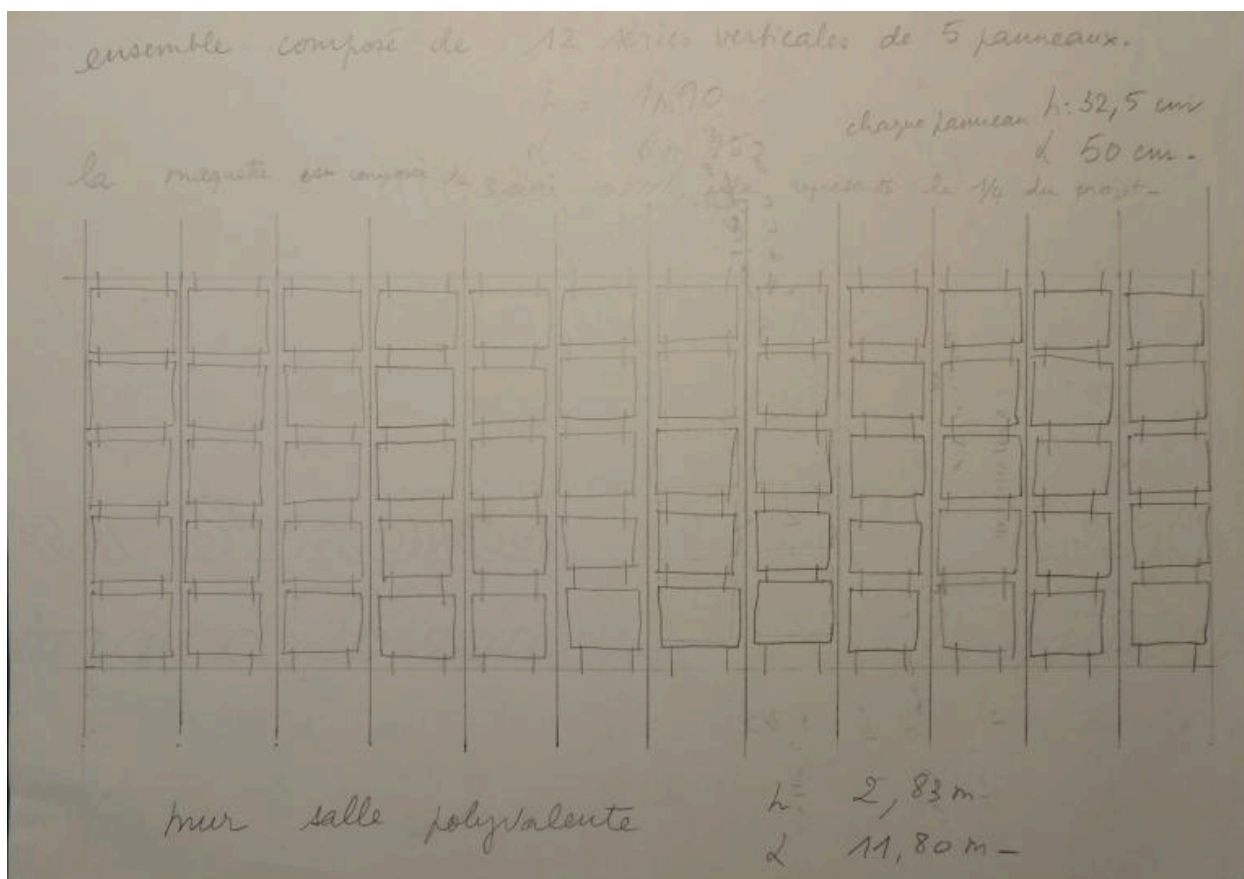 ensemble composé de 12 séries verticales de 5 panneaux.
h = 1m90
chaque panneau h: 32,5 cm
l 50 cm -
la maquette est composée de 3 représente le 1/4 du projet -
mur salle polyvalente
h 2,83 m -
l 11,80 m -